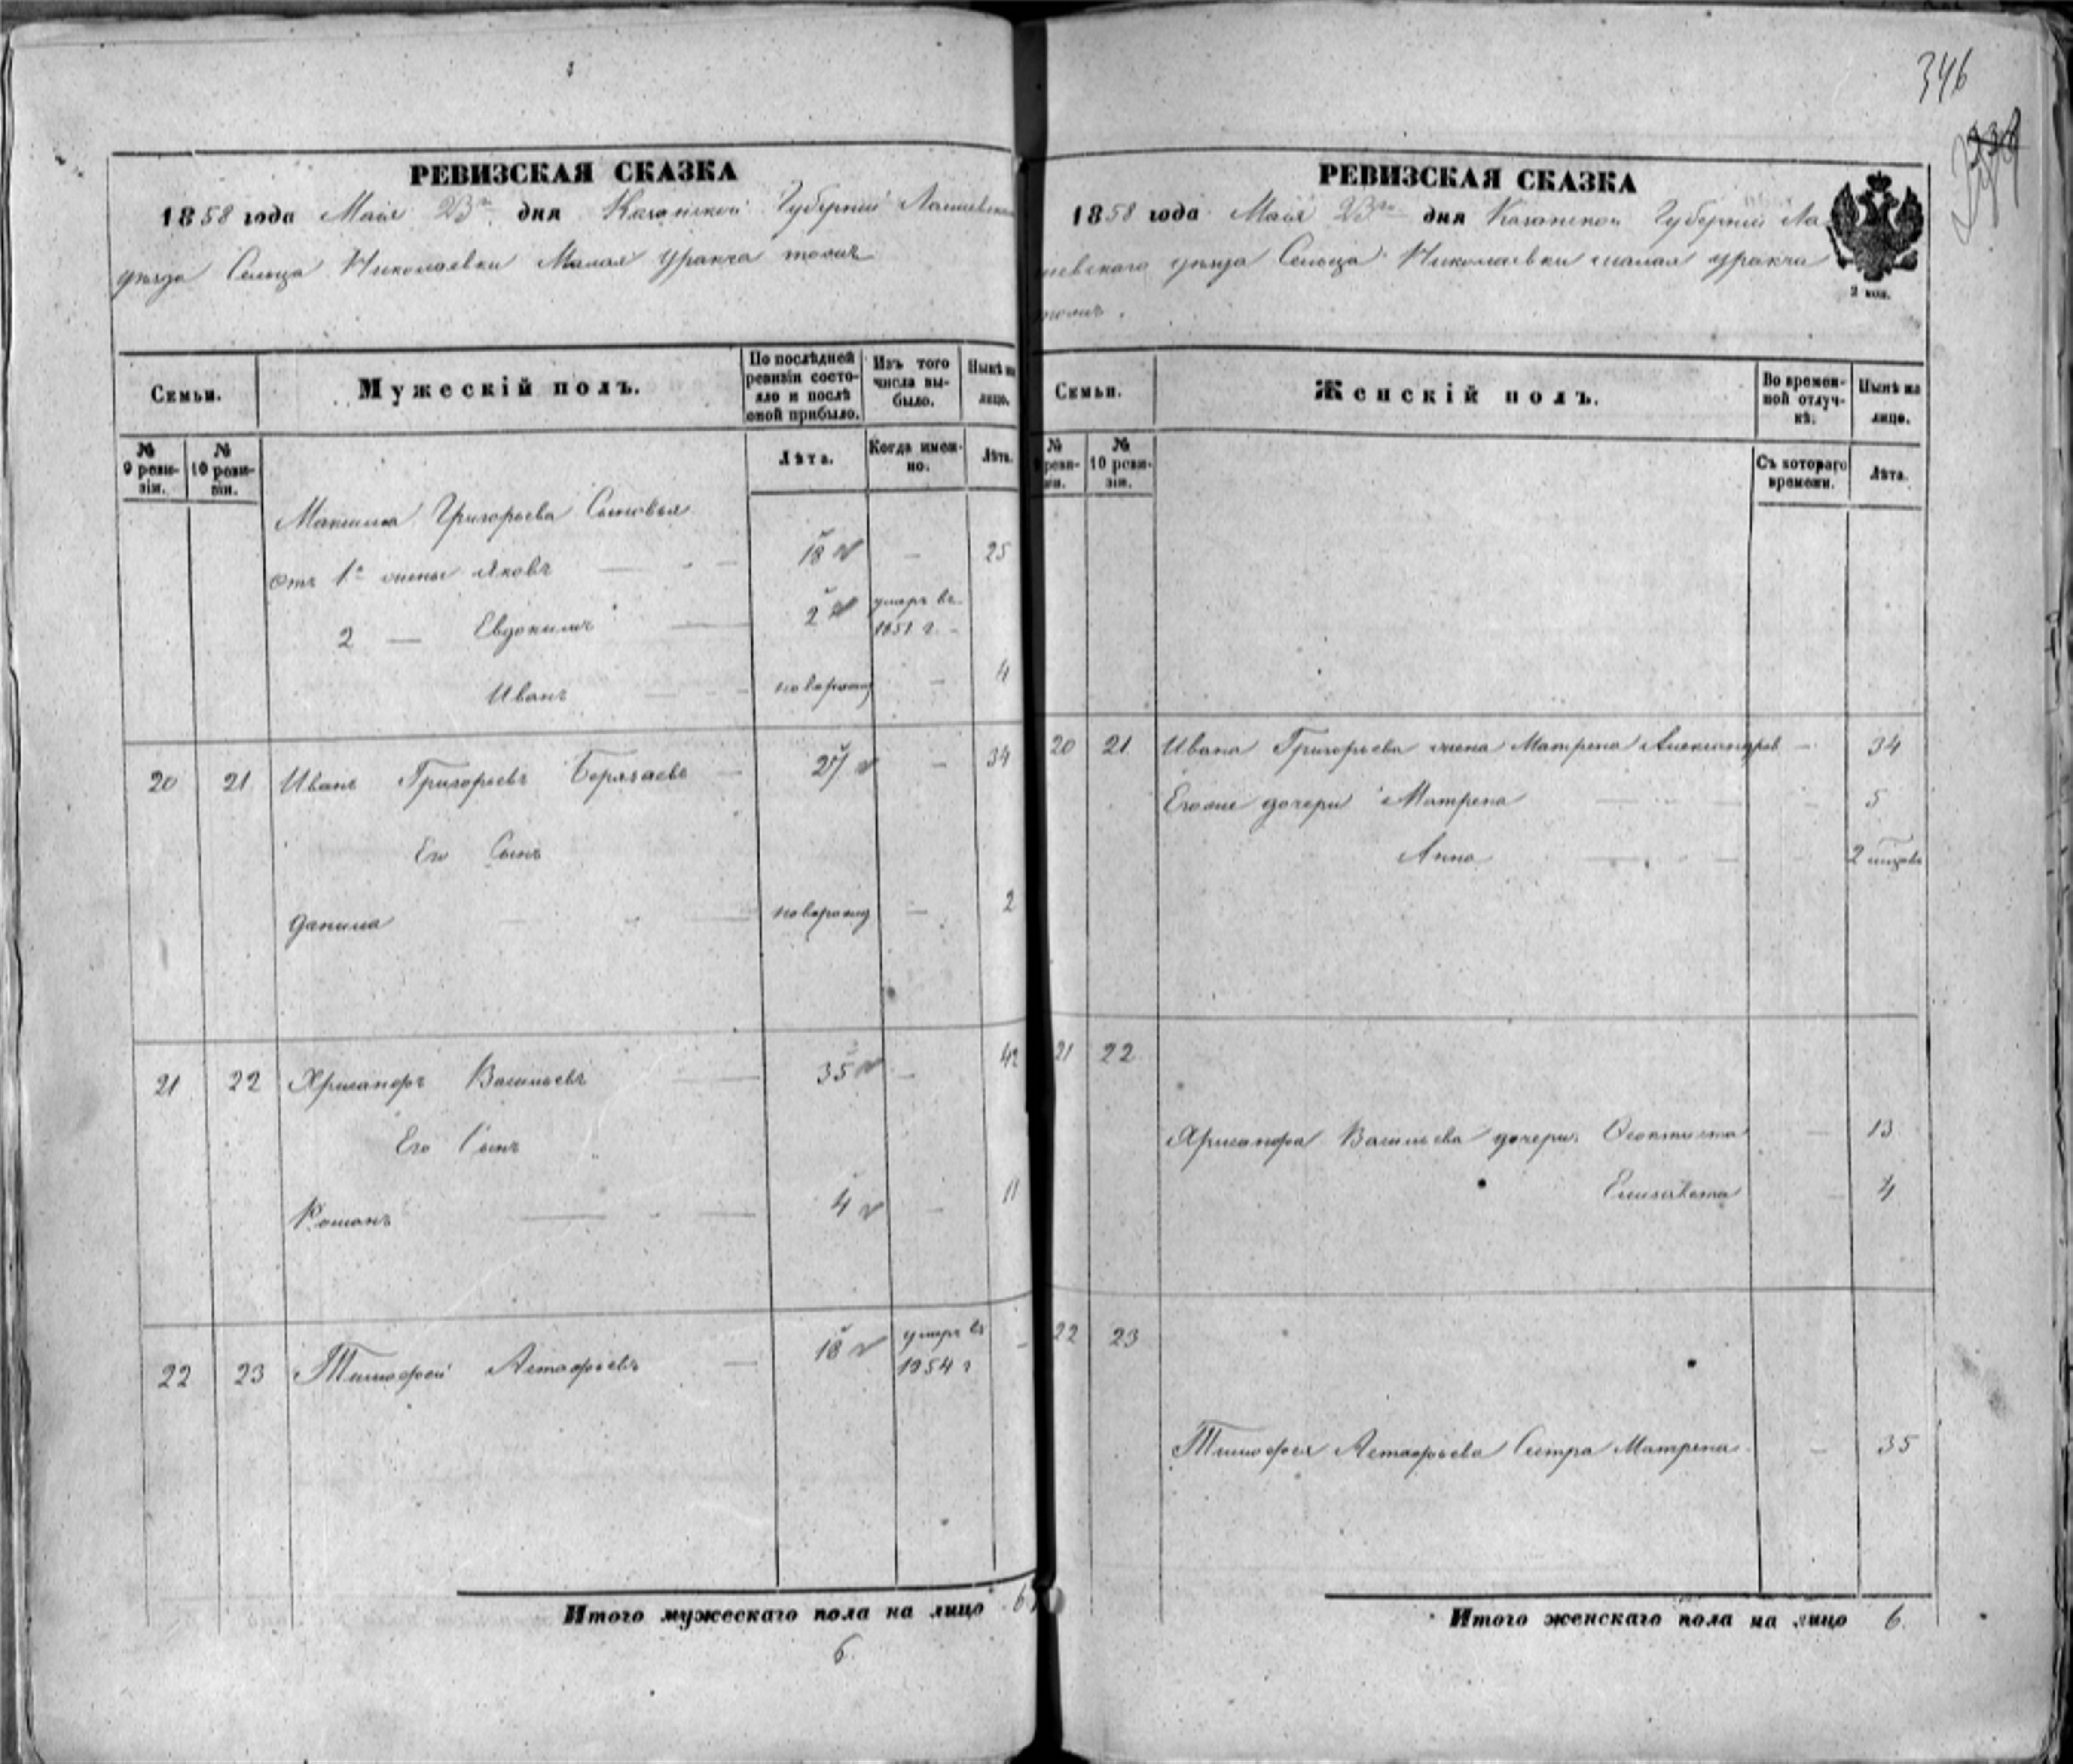 346
РЕВИЗСКАЯ СКАЗКА
1858 года Маія 23го дня Казанской Губерніи Лаишевскаго
уѣзда Сельца Николаевки Малая Уракча тожъ
Семьи.
Мужескій полъ.
По послѣдней ревизіи состояло и послѣ оной прибыло.
Изъ того числа выбыло.
Нынѣ на лицо.
№ 9 ревизіи.
№ 10 ревизіи.
Лѣта.
Когда именно.
Лѣта.
Максима Григорьева Сыновья
отъ 1й жены Яковъ 18 — 25
2 — Евдокимъ 2 умеръ въ 1851 г. —
Иванъ новорожд — 4
20 21 Иванъ Григорьевъ 27 — 34
Его Сынъ
Данила новорожд — 2
21 22 Хрисанфъ Васильевъ 35 — 42
Его Сынъ
Романъ 4 — 11
22 23 Тимофей Астафьевъ — 18 умеръ въ 1854 г —
Итого мужескаго пола на лицо 6
6
РЕВИЗСКАЯ СКАЗКА
1858 года Маія 23го дня Казанской Губерніи Ла
ишевскаго уѣзда Сельца Николаевки малая уракча
тожъ.
2 коп.
Семьи.
Женскій полъ.
Во временной отлучкѣ.
Нынѣ на лицо.
№ 9 ревизіи.
№ 10 ревизіи.
Съ котораго времени.
Лѣта.
20 21 Ивана Григорьева жена Матрена Александров — 34
Его же дочери Матрена — 5
Анна — 2
21 22
Хрисанфа Васильева дочери Феоктиста — 13
Елизавета — 4
22 23
Тимофея Астафьева Сестра Матрена — 35
Итого женскаго пола на лицо 6